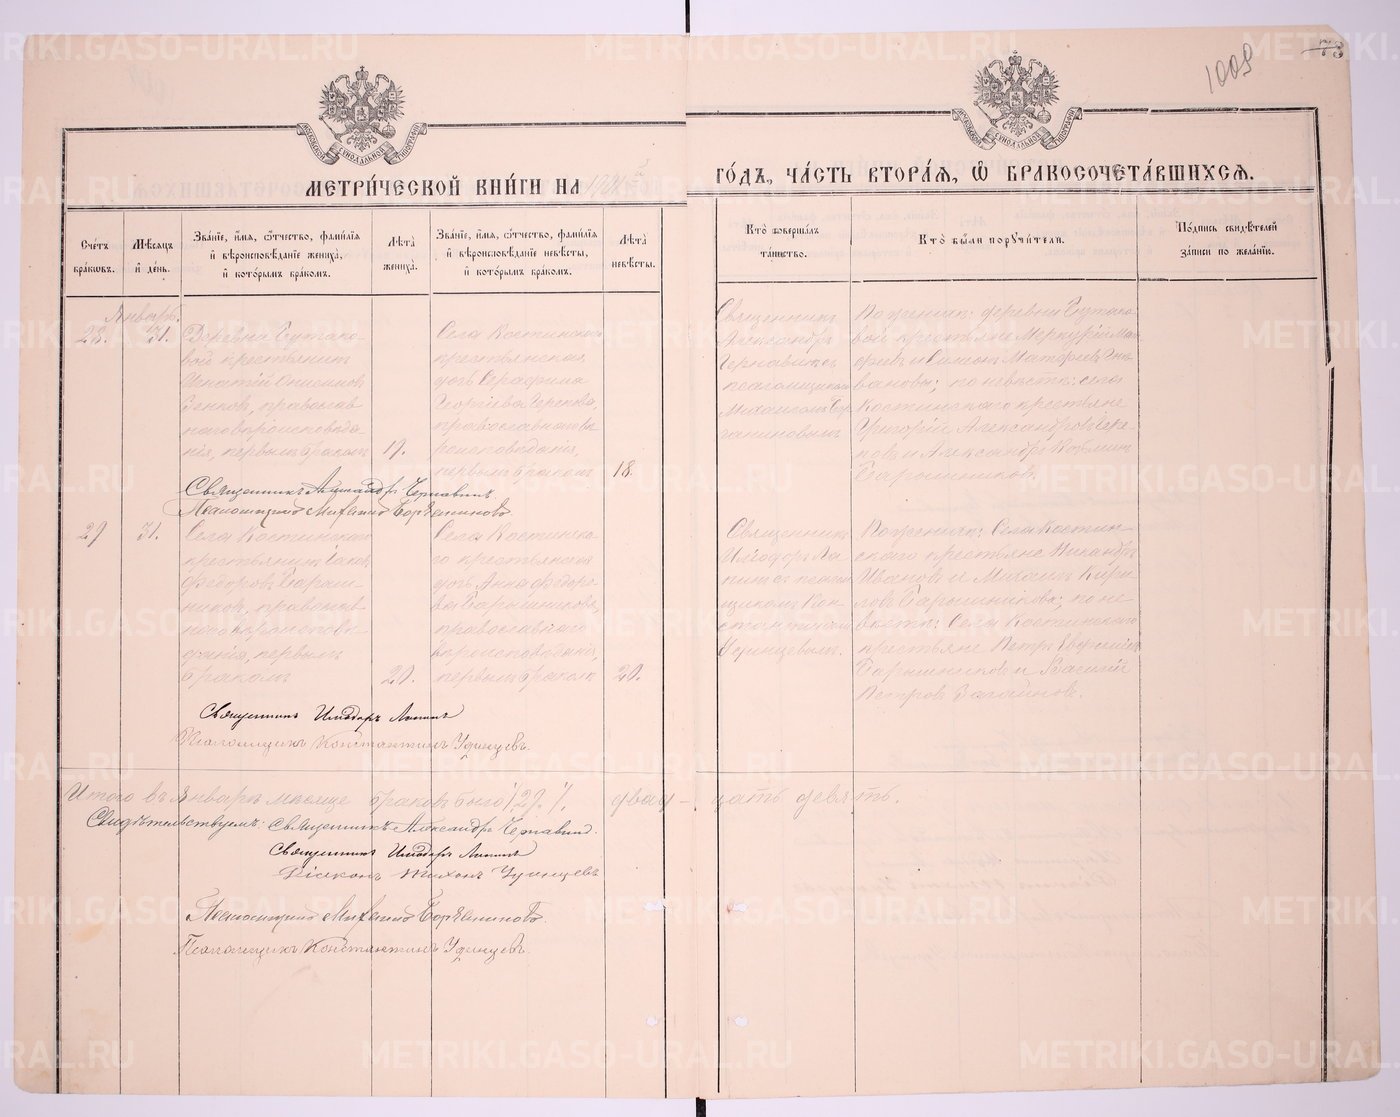 1009
73
МЕТРИ́ЧЕСКОЙ КНИ́ГИ НА
ГО́ДЪ, ЧА́СТЬ ВТОРА́Я, Ѡ БРАКОСОЧЕТА́ВШИХСЯ.
Сче́тъ бра́ковъ.
Мѣ́сяцъ и҆ де́нь.
Зва́нїе, и҆́мя, ѻ҆́тчество, фами́лїя и҆ вѣроисповѣ́данїе жениха̀, и҆ кото́рымъ бра́комъ.
Лѣ́та жениха̀.
Зва́нїе, и҆́мя, ѻ҆́тчество, фами́лїя и҆ вѣроисповѣ́данїе невѣ́сты, и҆ кото́рымъ бра́комъ.
Лѣ́та невѣ́сты.
Кто̀ соверша́лъ та́инство.
Кто̀ бы́ли поручи́тели.
По́дпись свидѣ́телей за́писи по жела́нїю.
Январь.
28. 31.
Деревни
вой крестьянинъ
Игнатій
православ
наго вѣроисповѣда
нія, первымъ бракомъ
19.
Села Костинскаго
крестьянская
дочь Серафима
Георгіева
православнаго вѣ
роисповѣданія,
первымъ бракомъ
18.
Священникъ
Александръ
Чернавинъ съ
псаломщикомъ
Михаиломъ
По женихѣ: деревни
вой крестьяне Меркурій
и Симеонъ
по невѣстѣ: села
Костинскаго крестьяне
Григорій Александровъ
и Александръ
Барышниковъ.
Священникъ Александръ Чернавинъ
Псаломщикъ Михаилъ
29 31.
Села Костинскаго
крестьянинъ Іаковъ
Федоровъ Барыш
никовъ, православ
наго вѣроисповѣ
данія, первымъ
бракомъ
20.
Села Костинска
го крестьянская
дочь Анна Федоро
ва Барышникова,
православнаго
вѣроисповѣданія,
первымъ бракомъ
20.
Священникъ
Исидоръ Ла
пинъ съ псалом
щикомъ Кон
стантиномъ
Удинцевымъ.
По женихѣ: Села Костин
скаго крестьяне Никандръ
Ивановъ и Михаилъ Кири
ловъ Барышниковы; по не
вѣстѣ: Села Костинскаго
крестьяне Петръ Евфимiевъ
Барышниковъ и Василій
Петровъ Загайновъ.
Священникъ Исидоръ Лапинъ
Псаломщикъ Константинъ Удинцевъ.
Итого въ Январѣ мѣсяцѣ браковъ было /29./ двад-
цать девять.
Свидѣтельствуемъ: Священникъ Александръ Чернавинъ.
Священникъ Исидоръ Лапинъ
Діаконъ Тихонъ Удинцевъ
Псаломщикъ Михаилъ
Псаломщикъ Константинъ Удинцевъ.
METRIKI.GASO-URAL.RU